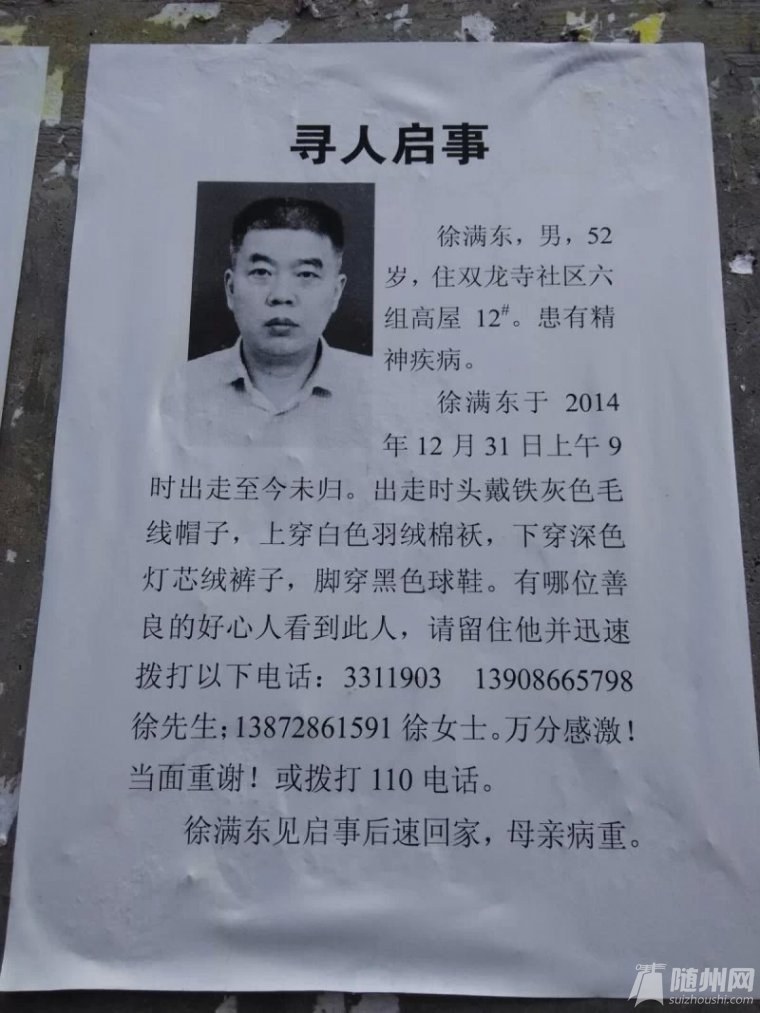 寻人启事
徐满东，男，52
岁，住双龙寺社区六
组高屋 12#。患有精
神疾病。
徐满东于 2014
年 12 月 31 日上午 9
时出走至今未归。出走时头戴铁灰色毛
线帽子，上穿白色羽绒棉袄，下穿深色
灯芯绒裤子，脚穿黑色球鞋。有哪位善
良的好心人看到此人，请留住他并迅速
拨打以下电话：3311903 13908665798
徐先生；13872861591 徐女士。万分感激！
当面重谢！或拨打 110 电话。
徐满东见启事后速回家，母亲病重。
随州网
suizhoushi.com